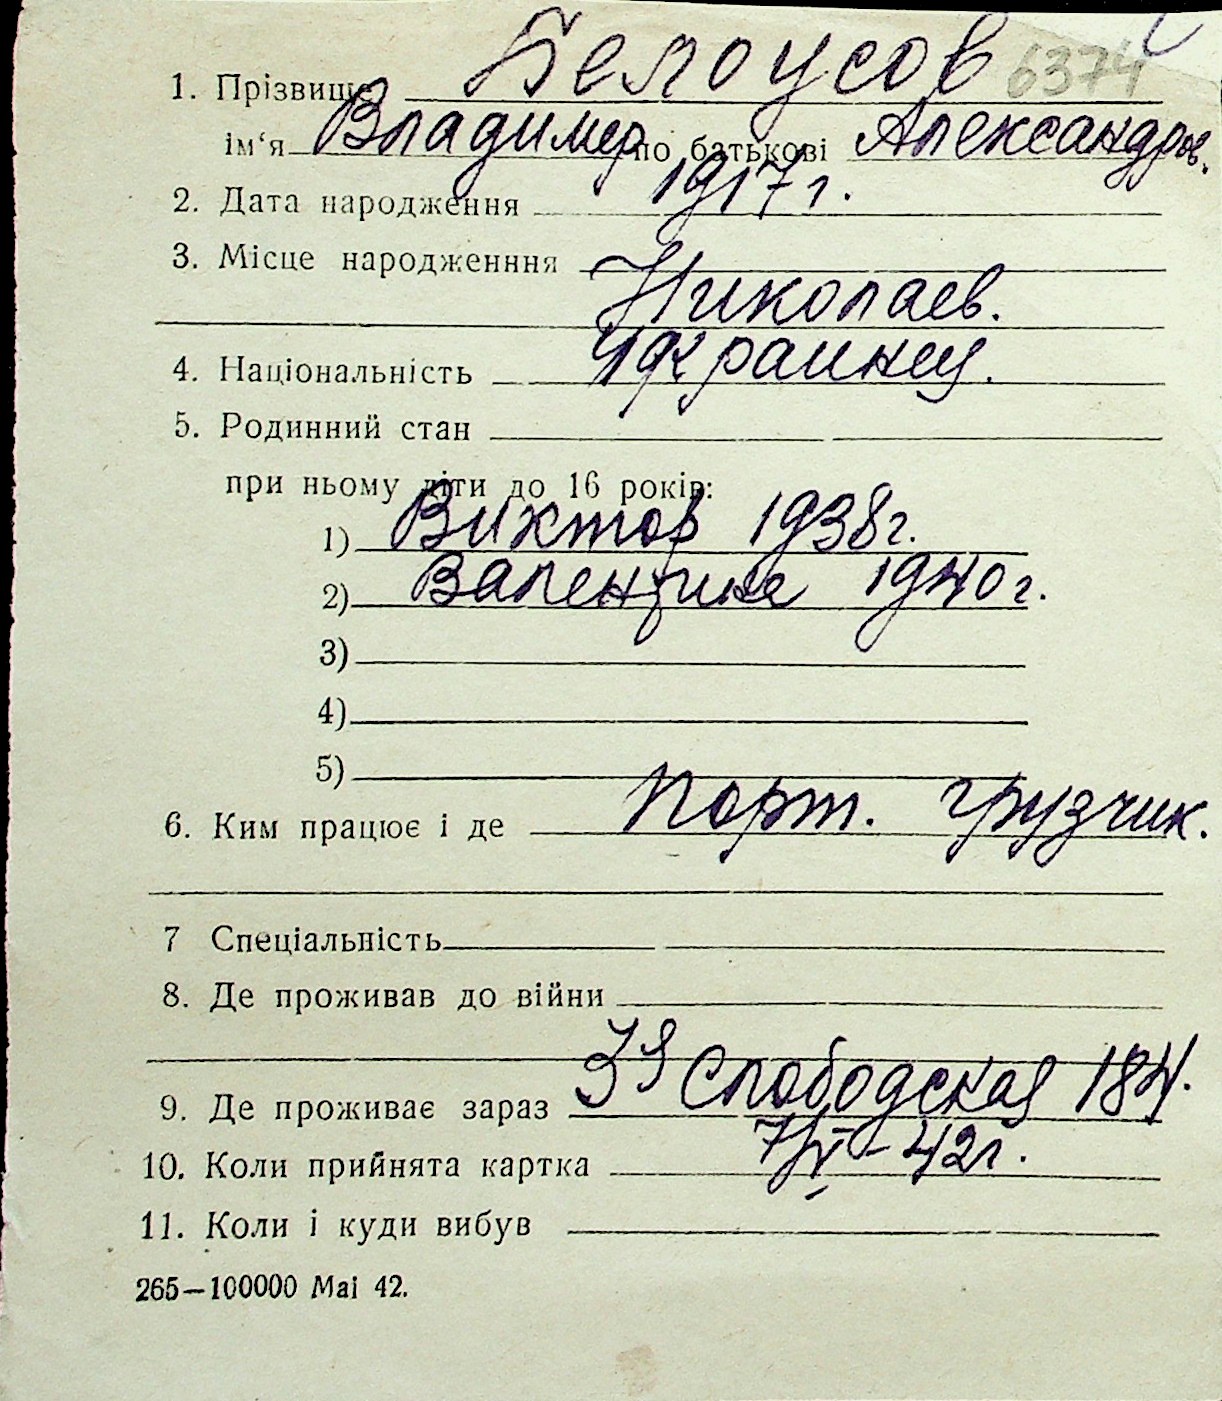 6374
1. Прізвище Белоусов
ім‘я Владимир по батькові Александров.
2. Дата народження 1917 г.
3. Місце народженння
Николаев.
4. Національність Украинец.
5. Родинний стан
при ньому діти до 16 років:
1) Виктор 1938 г.
2) Валентина 1940 г.
3)
4)
5)
6. Ким працює і де Порт. грузчик.
7 Спеціальність
8. Де проживав до війни
9. Де проживає зараз Слободская 184.
10. Коли прийнята картка 7/VI–42 г.
11. Коли і куди вибув
265—100000 Mai 42.